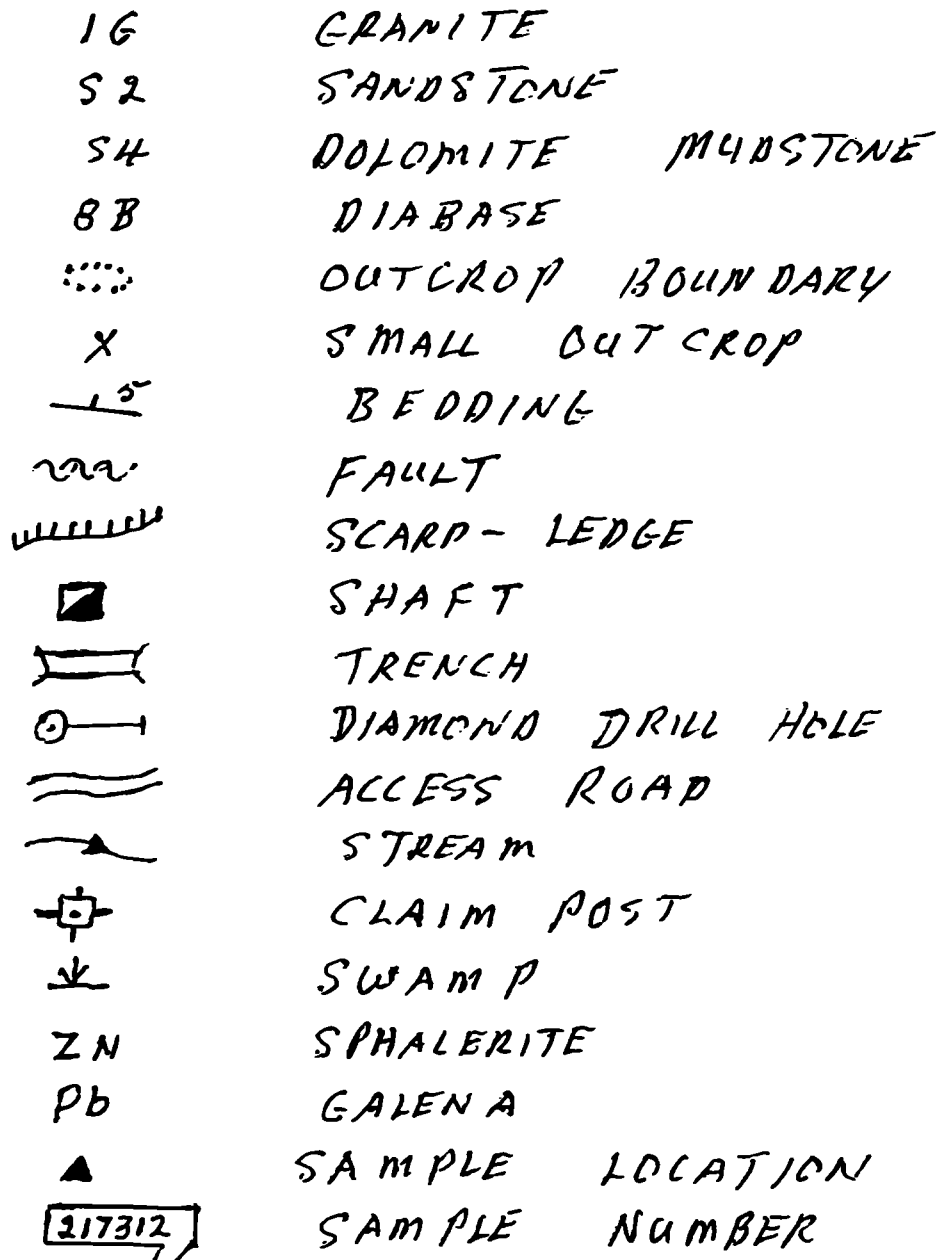 1G GRANITE
S2 SANDSTONE
S4 DOLOMITE MUDSTONE
8B DIABASE
OUTCROP BOUNDARY
X SMALL OUTCROP
5 BEDDING
FAULT
SCARP - LEDGE
SHAFT
TRENCH
DIAMOND DRILL HOLE
ACCESS ROAD
STREAM
CLAIM POST
SWAMP
ZN SPHALERITE
Pb GALENA
SAMPLE LOCATION
217312 SAMPLE NUMBER